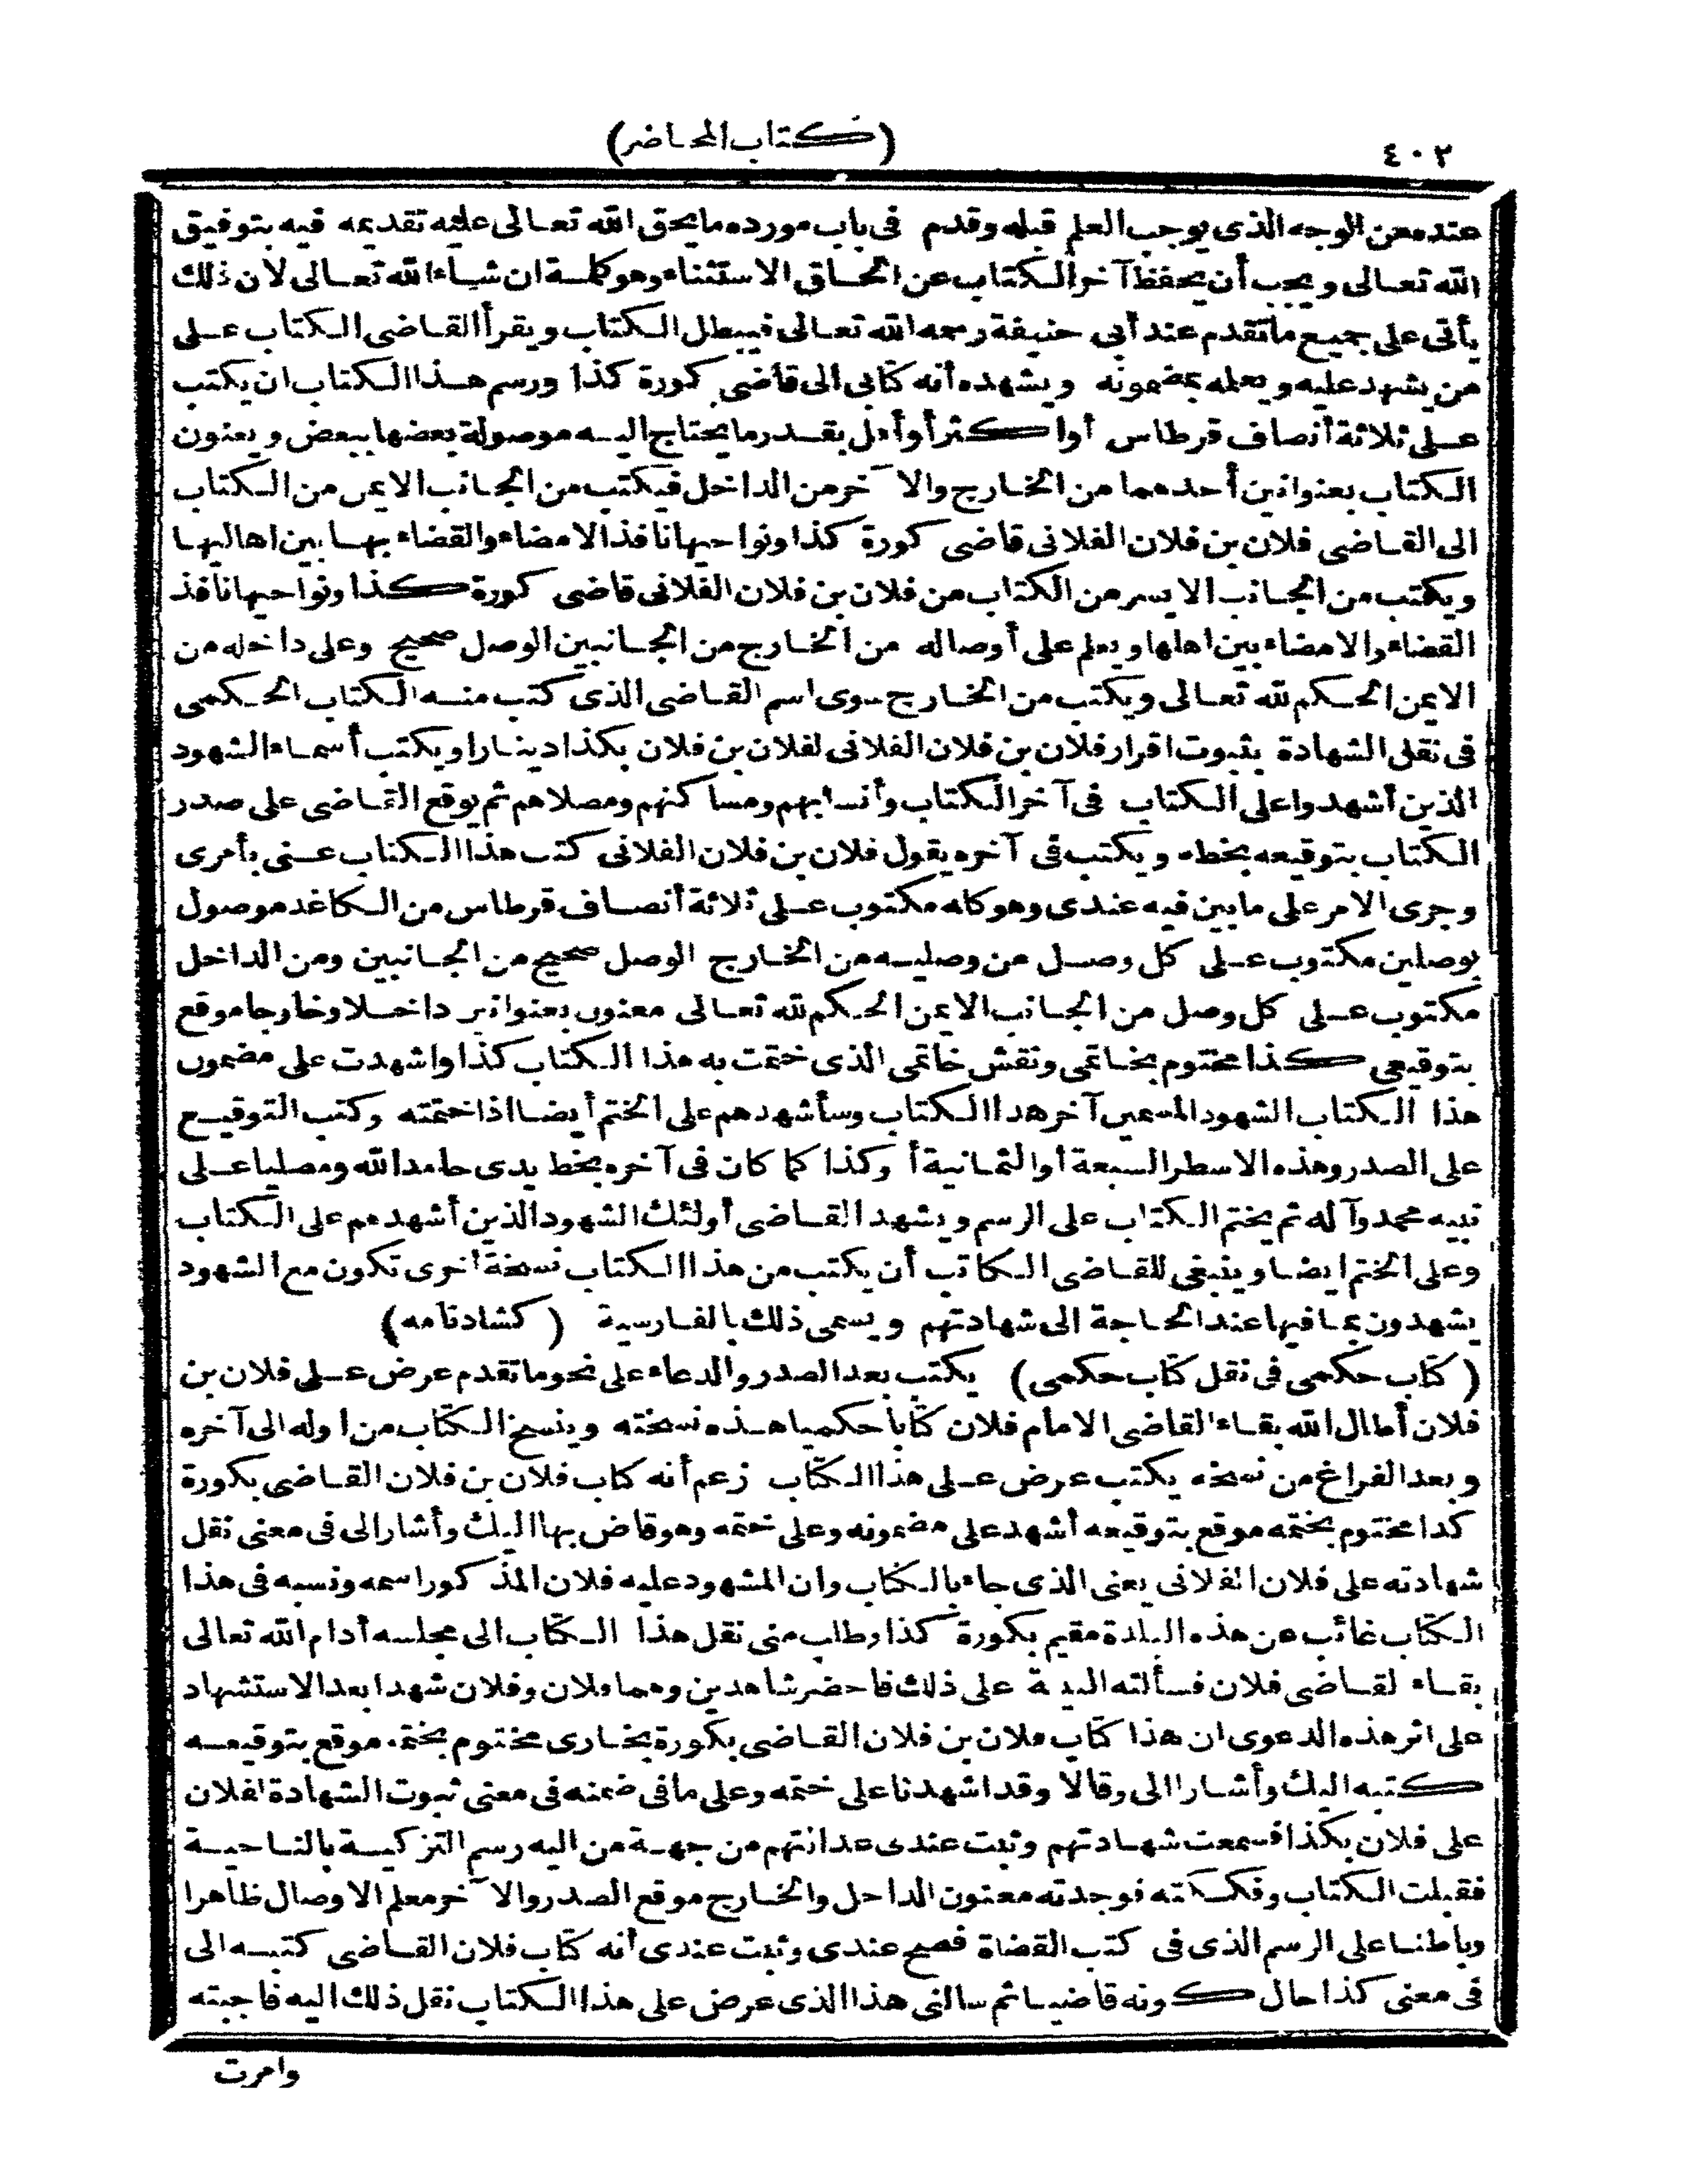 ٤٠٢
(كتاب المحاضر)
عنده من الوجه الذى يوجب العلم قبله وقدم فى باب مورده ما يحق الله تعالى عليه تقديمه فيه بتوفيق
الله تعالى ويجب أن يحفظ آخر الكتاب عن الحاق الاستثناء وهو كلمة ان شاء الله تعالى لان ذلك
يأتى على جميع ما تقدم عند أبى حنيفة رحمه الله تعالى فيبطل الكتاب ويقرأ القاضى الكتاب على
من يشهد عليه ويعلمه بمضمونه ويشهده أنه كتابى الى قاضى كورة كذا ورسم هذا الكتاب ان يكتب
على ثلاثة أنصاف قرطاس أو اكثر أو أقل بقدر ما يحتاج اليه موصولة بعضها ببعض ويعنون
الكتاب بعنوانين أحدهما من الخارج والآخر من الداخل فيكتب من الجانب الايمن من الكتاب
الى القاضى فلان بن فلان الفلانى قاضى كورة كذا ونواحيها نافذ الامضاء والقضاء بها بين اهاليها
ويكتب من الجانب الايسر من الكتاب من فلان بن فلان الفلانى قاضى كورة كذا ونواحيها نافذ
القضاء والامضاء بين اهلها ويعلم على أوصاله من الخارج من الجانبين الوصل صحيح وعلى داخله من
الايمن الحكم لله تعالى ويكتب من الخارج سوى اسم القاضى الذى كتب منه الكتاب الحكمى
فى نقل الشهادة بثبوت اقرار فلان بن فلان الفلانى لفلان بن فلان بكذا دينارا ويكتب أسماء الشهود
الذين أشهدوا على الكتاب فى آخر الكتاب وأنسابهم ومساكنهم ومصلاهم ثم يوقع القاضى على صدر
الكتاب بتوقيعه بخطه ويكتب فى آخره يقول فلان بن فلان الفلانى كتب هذا الكتاب عنى بأمرى
وجرى الامر على ما بين فيه عندى وهو كله مكتوب على ثلاثة أنصاف قرطاس من الكاغد موصول
بوصلين مكتوب على كل وصل من وصليه من الخارج الوصل صحيح من الجانبين ومن الداخل
مكتوب على كل وصل من الجانب الايمن الحكم لله تعالى معنون بعنوانين داخلا وخارجا موقع
بتوقيعى كذا مختوم بخاتمى ونقش خاتمى الذى ختمت به هذا الكتاب كذا واشهدت على مضمون
هذا الكتاب الشهود المسمين آخر هذا الكتاب وسأشهدهم على الختم أيضا اذا ختمته وكتب التوقيع
على الصدر وهذه الاسطر السبعة أو الثمانية أ وكذا كما كان فى آخره بخط يدى حامدا لله ومصليا على
نبيه محمد وآله ثم يختم الكتاب على الرسم ويشهد القاضى أولئك الشهود الذين أشهدهم على الكتاب
وعلى الختم ايضا وينبغى للقاضى الكاتب أن يكتب من هذا الكتاب نسخة اخرى تكون مع الشهود
يشهدون بما فيها عند الحاجة الى شهادتهم ويسمى ذلك بالفارسية (كشادنامه)
(كتاب حكمى فى نقل كتاب حكمى) يكتب بعد الصدر والدعاء على نحو ما تقدم عرض على فلان بن
فلان أطال الله بقاء القاضى الامام فلان كتابا حكميا هذه نسخته وينسخ الكتاب من اوله الى آخره
وبعد الفراغ من نسخه يكتب عرض على هذا الكتاب زعم أنه كتاب فلان بن فلان القاضى بكورة
كذا مختوم بختمه موقع بتوقيعه أشهد على مضمونه وعلى ختمه وهو قاض بها اليك وأشار الى فى معنى نقل
شهادته على فلان الفلانى يعنى الذى جاء بالكتاب وان المشهود عليه فلان المذكور اسمه ونسبه فى هذا
الكتاب غائب عن هذه البلدة مقيم بكورة كذا وطلب منى نقل هذا الكتاب الى مجلسه أدام الله تعالى
بقاء لقاضى فلان فسألته البينة على ذلك فاحضر شاهدين وهما فلان وفلان شهدا بعد الاستشهاد
على اثر هذه الدعوى ان هذا كتاب فلان بن فلان القاضى بكورة بخارى مختوم بختمه موقع بتوقيعه
كتبه اليك وأشارا الى وقالا وقد اشهدنا على ختمه وعلى ما فى ضمنه فى معنى ثبوت الشهادة لفلان
على فلان بكذا فسمعت شهادتهم وثبت عندى عدالتهم من جهة من اليه رسم التزكية بالناحية
فقبلت الكتاب وفككته فوجدته معنون الداخل والخارج موقع الصدر والآخر معلم الاوصال ظاهرا
وباطنا على الرسم الذى فى كتب القضاة فصح عندى وثبت عندى أنه كتاب فلان القاضى كتبه الى
فى معنى كذا حال كونه قاضيا ثم سالنى هذا الذى عرض على هذا الكتاب نقل ذلك اليه فاجبته
وامرت